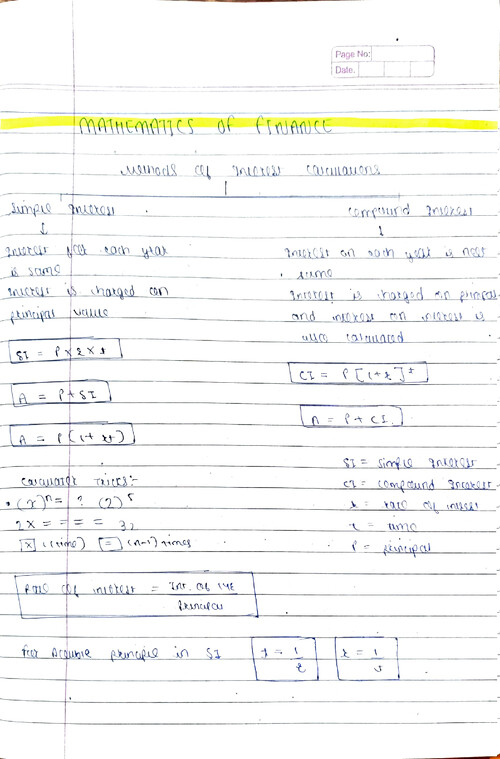 Page No:
Date.
MATHEMATICS OF FINANCE
Methods of Interest Calculations
Simple Interest
↓
Interest for each year
is same
Interest is charged on
principal value
SI = P x r x t
A = P+SI
A = P(1+ rt)
Compound Interest
↓
Interest on each year is not
same
Interest is charged on principal
and interest on interest is
also calculated
CI = P[1+r]t
A = P + CI
SI = Simple Interest
CI = Compound Interest
r = rate of interest
t = time
P = principal
Calculator Tricks:-
• (x)n = ? (2)5
2X = = = = 32
[x] 1(time) [=] (n-1) times
Rate of interest = Int. of 1YE / Principal
For Double principle in SI
t = 1/r
r = 1/t